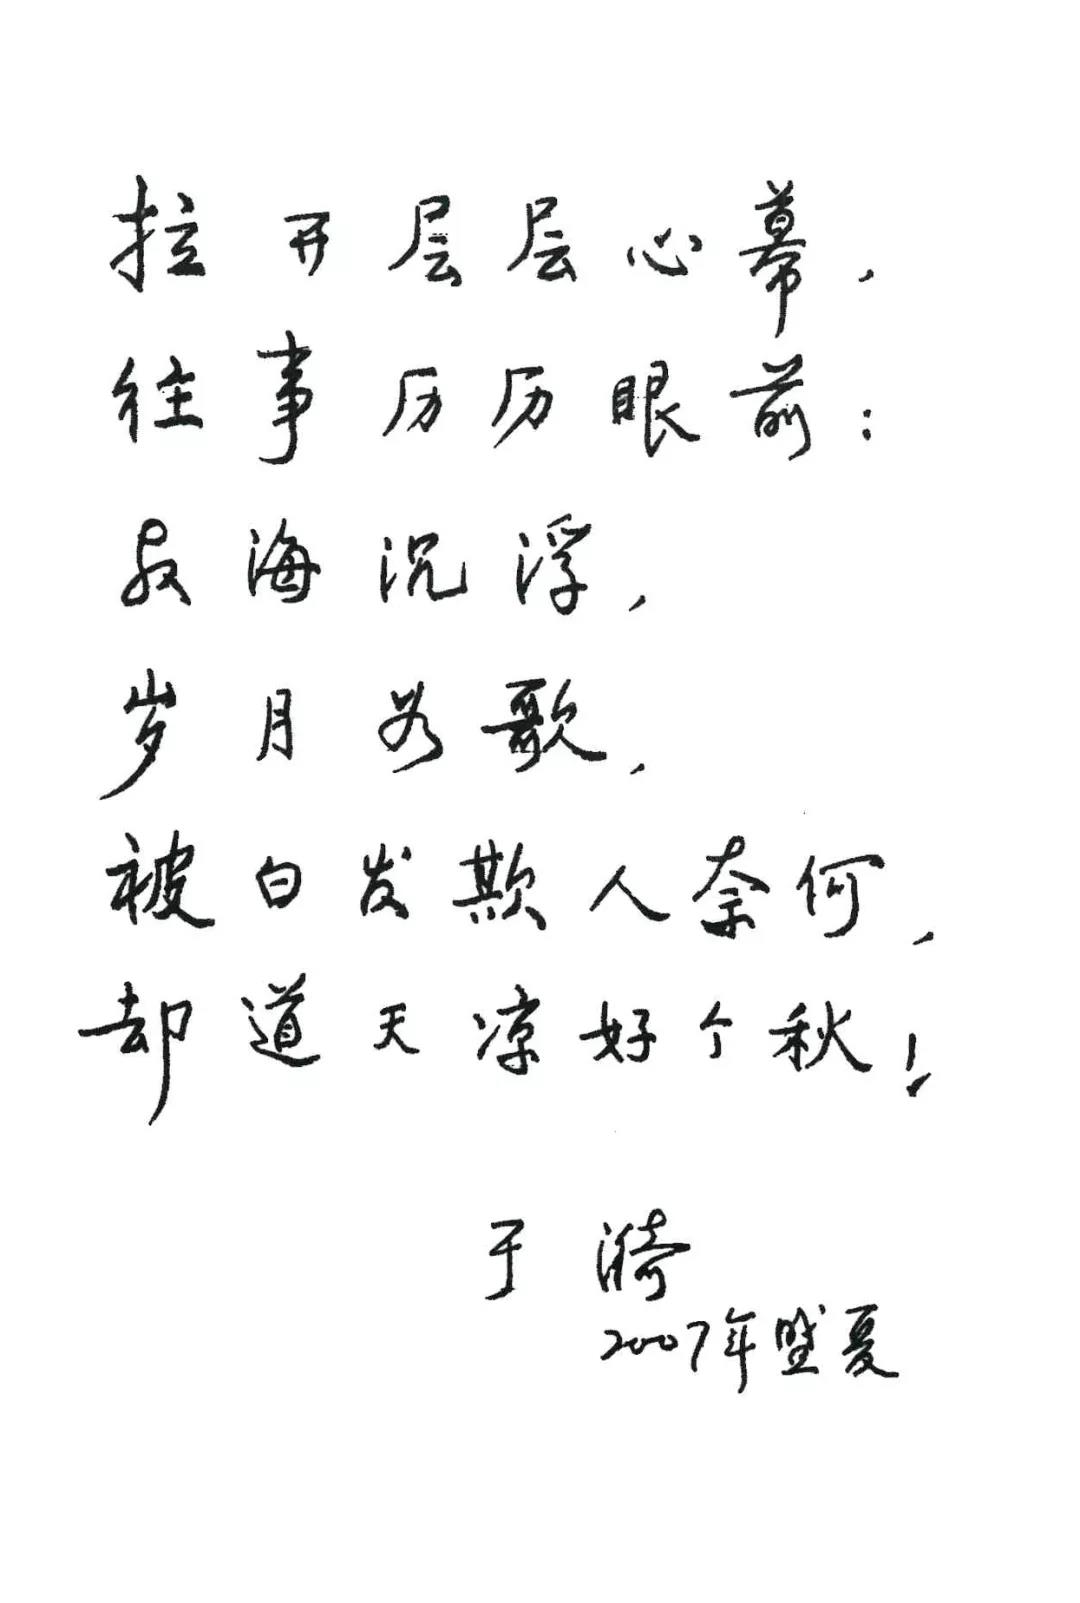 拉开层层心幕，
往事历历眼前：
教海沉浮，
岁月若歌，
被白发欺人奈何，
却道天凉好个秋！
于漪
2007年盛夏